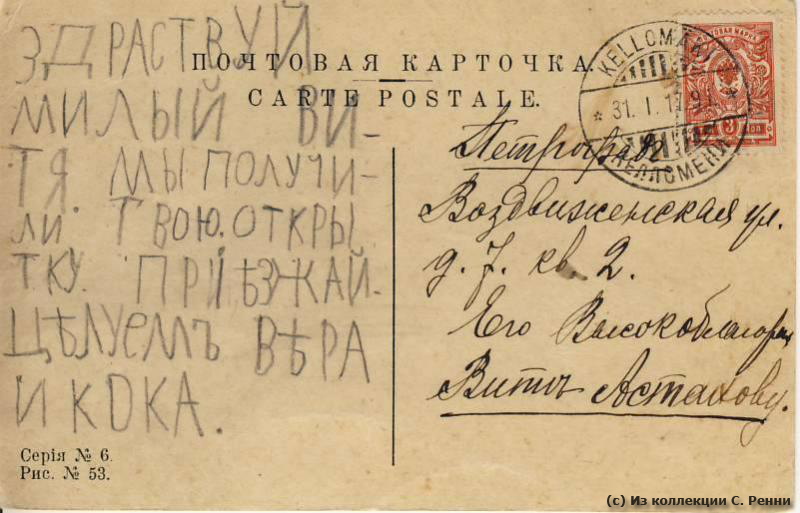 ЗДРАСТВУЙ
МИЛЫЙ ВИ-
ТЯ. МЫ ПОЛУЧИ-
ЛИ ТВОЮ.ОТКРЫ
ТКУ. ПРІѢЗЖАЙ-
ЦѢЛУЕМЪ ВѢРА
И КОКА.
Серія № 6.
Рис. № 53.
ПОЧТОВАЯ КАРТОЧКА.
CARTE POSTALE.
KELLOMÄKI
31. I. 17
КЕЛЛОМЕКИ
Петроградъ
Воздвиженская ул.
д. 7. кв. 2.
Его Высокоблагор
Витѣ Астахову.
(с) Из коллекции С. Ренни